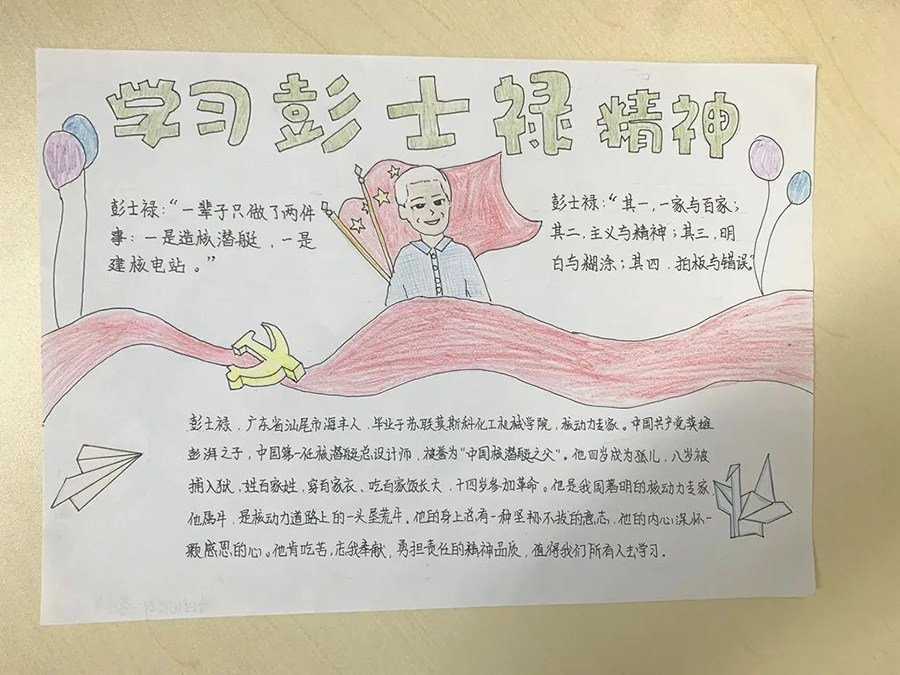 学习彭士禄精神
彭士禄:“一辈子只做了两件
事:一是造核潜艇,一是
建核电站。”
彭士禄:“其一,一家与百家;
其二,主义与精神;其三,明
白与糊涂;其四,拍板与错误”
彭士禄,广东省汕尾市海丰人,毕业于苏联莫斯科化工机械学院,核动力专家。中国共产党英雄
彭湃之子,中国第一任核潜艇总设计师,被誉为“中国核潜艇之父”。他四岁成为孤儿,八岁被
捕入狱,姓百家姓,穿百家衣、吃百家饭长大,十四岁参加革命。他是我国著明的核动力专家
他属牛,是核动力道路上的一头垦荒牛。他的身上总有一种坚韧不拔的意志,他的内心深怀一
颗感恩的心。他肯吃苦,忘我奉献,勇担责任的精神品质,值得我们所有人去学习.